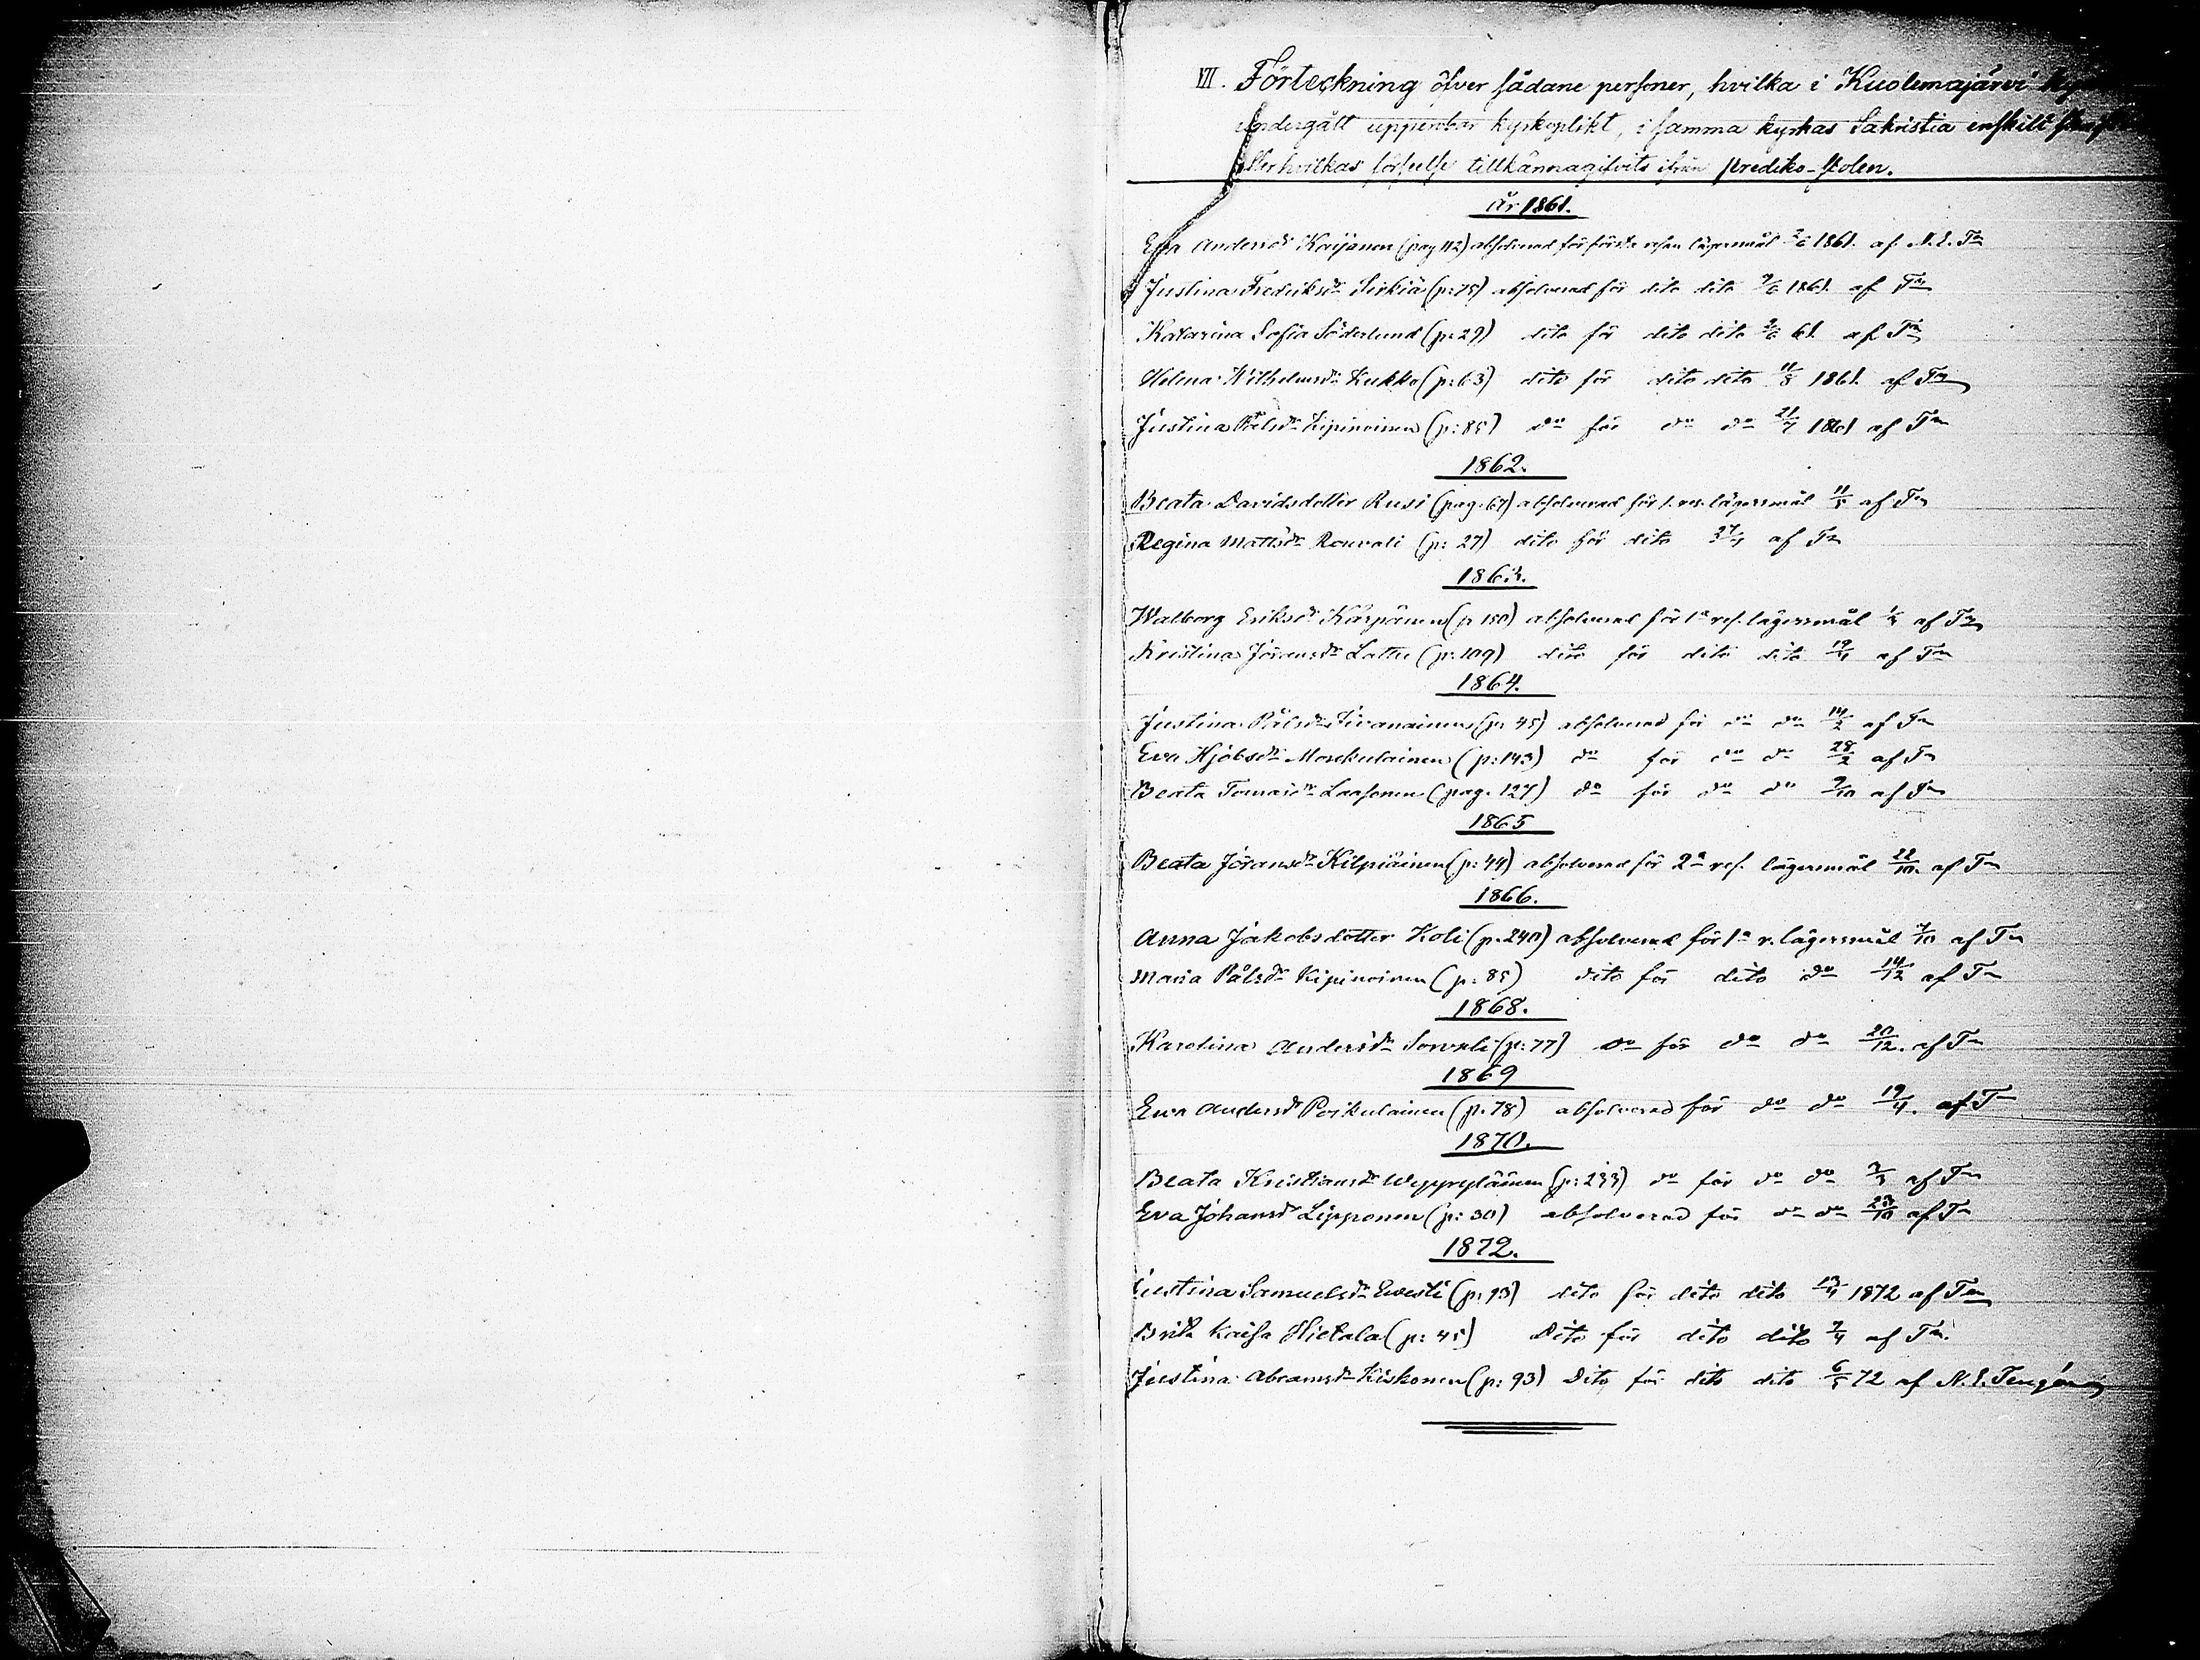 VII. Förteckning öfver sådane personer, hvilka i Kuolemajärvi
undergått uppenbar kyrkoplikt, i samma kyrkas Sakristia enskilt
eller hvilkas förseelse tillkännagifvits ifrån prediko-stolen.
År 1861.
Eva Andersdr Kaijanen (pag 112) absolverad för första resan lägersmål 2/6 1861. af N. E. Tn
Justina Fredriksdr Sirkiä (p: 75) absolverad för dito dito 9/6 1861. af Tn
Katarina Sofia Söderlund (p: 29) dito för dito dito 9/6 61. af Tn
Helena Wilhelmsdr Kukko (p: 63) dito för dito dito 11/8 1861. af Tn
Justina Pålsdr Kipinoinen (p: 85) do för do do 21/7 1861 af Tn
1862.
Beata Davidsdotter Rusi (pag. 67) absolverad för 1. res. lägersmål 11/5 af Tn
Regina Mattsdr Rouvali (p: 27) dito för dito 27/4 af Tn
1863.
Walborg Eriksdr Kärpänen (p 150) absolverad för 1a res. lägersmål af Tn
Kristina Jöransdr Lattu (p: 109) dito för dito dito 19/4 af Tn
1864.
Justina Pålsdr (p: 45) absolverad för do do 14/2 af Tn
Eva Hjobsdr Monkulainen (p: 143) do för do do 28/2 af Tn
Beata Tomasdr Laasonen (pag. 127) do för do do 9/10 af Tn
1865
Beata Jöransdr Kilpiäinen (p: 44) absolverad för 2a res. lägersmål 22/10. af Tn
1866.
Anna Jakobsdotter Koli (p. 240) absolverad för 1a r. lägersmål 7/10 af Tn
Maria Pålsdr Kipinoinen (p: 85) dito för dito do 14/12 af Tn
1868.
Karolina Andersdr Sorvali (p: 77) do för do do 20/12. af Tn
1869
Eva Andersdr Poikulainen (p. 78) absolverad för do do 19/4. af Tn
1870.
Beata Kristiansdr Weppsyläinen (p: 233) do för do do af Tn
Eva Johansdr Lipponen (p: 30) absolverad för do do 23/10 af Tn
1872.
Justina Samuelsdr Evesti (p: 93) dito för dito dito 13/4 1872 af Tn
Brita Kaisa Hietala (p: 45) Dito för dito dito 7/4 af Tn
Justina Abramsdr Kiskonen (p: 93) Dito för dito dito 6/5 72 af N. E. Tengén